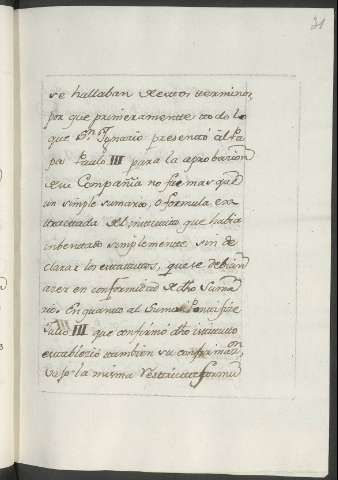 31
se hallaban de estos terminos,
por que primeramente todo lo
que Sn. Ygnacio presentó al Pa
pa Paulo III para la aprobacion
de su Compañia no fue mas que
un simple sumario, o formula, ex
tractada del instituto que habia
inbentado simplemente sin de
clarar los estatutos, que se debian
aser en conformidad de dho Suma
rio. En quanto al Sumo Pontifize
Julio III que confirmo dho istituto
establecio tambien su confirmaon.
vajo la misma restricta formu